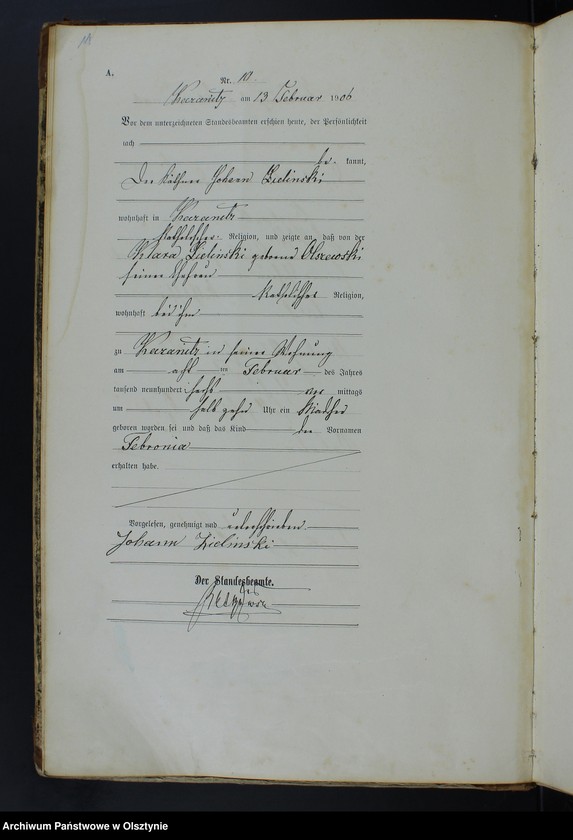 11
A.
Nr. 10
Kazanitz am 13 Februar 1906
Vor dem unterzeichneten Standesbeamten erschien heute, der Persönlichkeit
nach
be- kannt,
Der Käthner Johann Zielinski
wohnhaft in Kazanitz
katholischer Religion, und zeigte an, daß von der
Klara Zielinski geborene Olszewski
seiner Ehefrau
katholischer Religion,
wohnhaft bei ihm
zu Kazanitz in seiner Wohnung
am acht ten Februar des Jahres
tausend neunhundert sechs vor mittags
um halb zehn Uhr ein Mädchen
geboren worden sei und daß das Kind den Vornamen
Febronia
erhalten habe.
Vorgelesen, genehmigt und unterschrieben
Johann Zielinski
Der Standesbeamte.
Archiwum Państwowe w Olsztynie